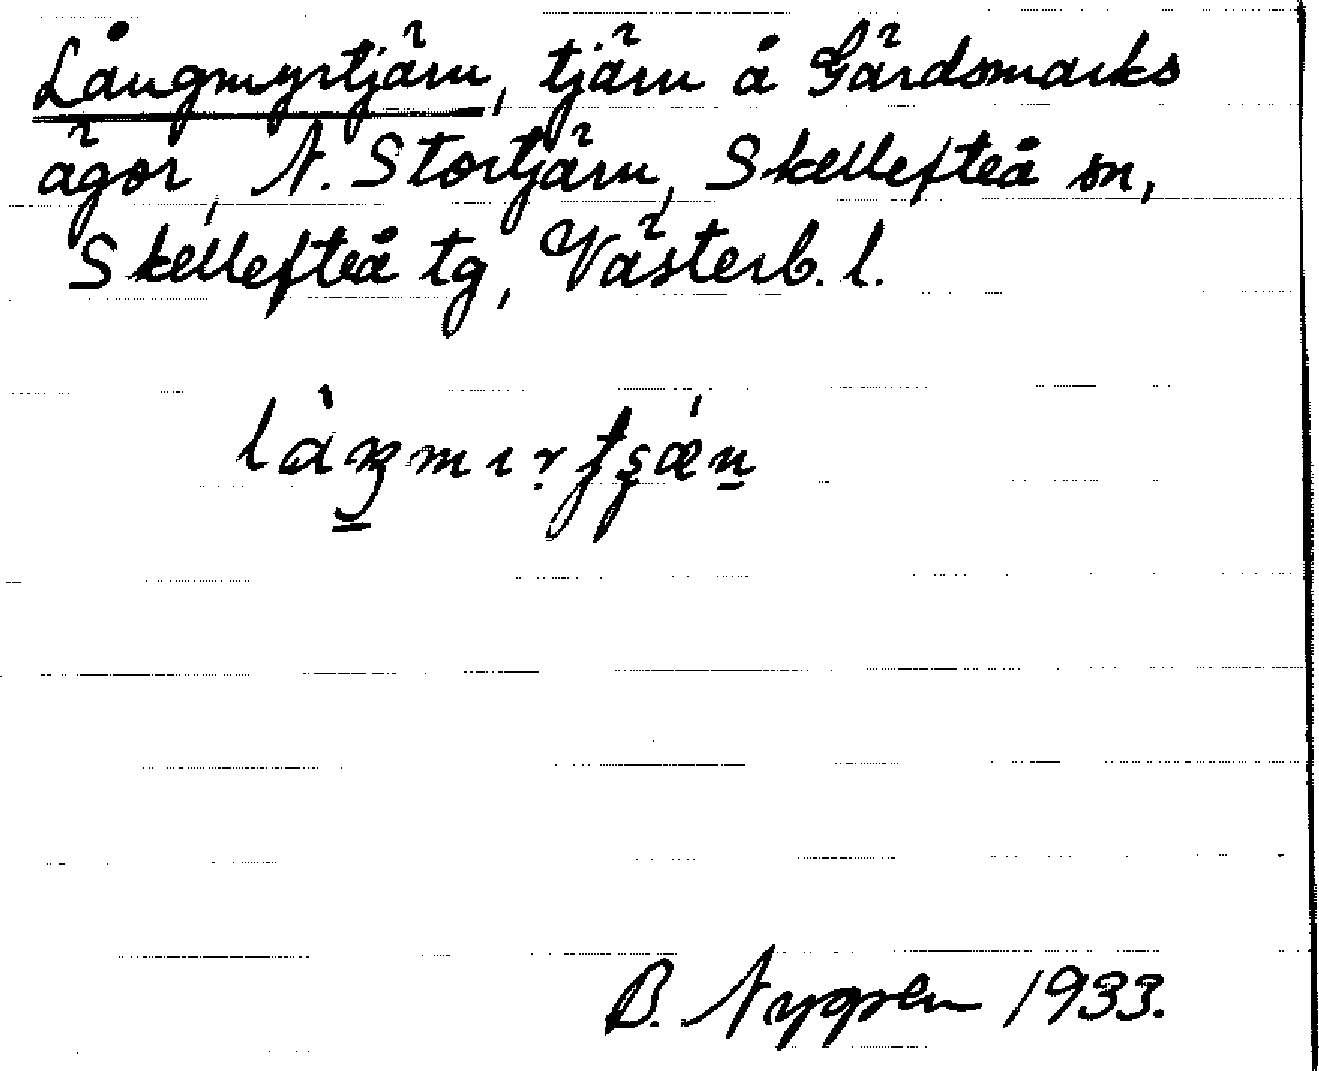 Långmyrtjärn, tjärn å Gärdsmarks
ägor, N. Stortjärn, Skellefteå sn,
Skellefteå tg, Västerb. l.
B. Nygren 1933.